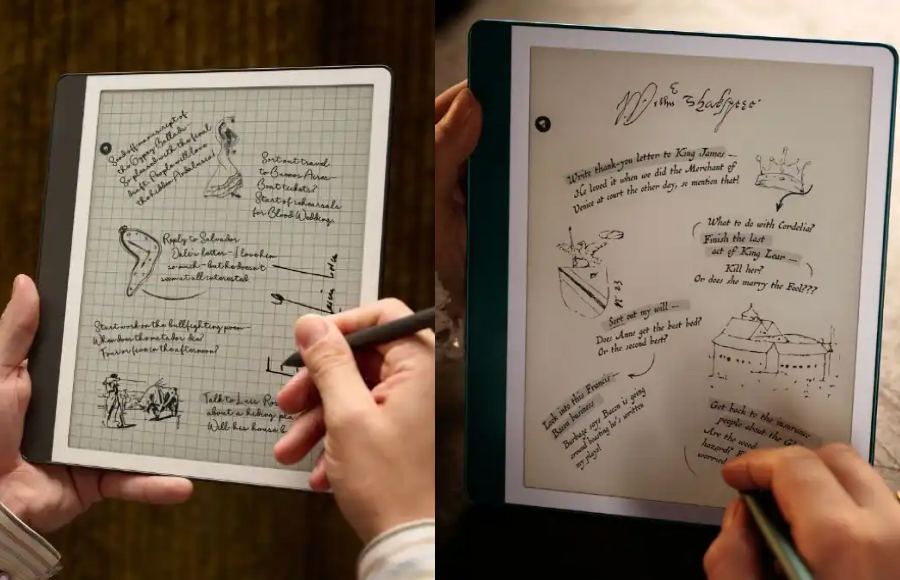 Send off manuscript of
the Gypsy Ballads
So pleased with the final
draft. People will love
the hidden Andalusia
Sort out travel
to Buenos Aires
Boat tickets?
Start of rehearsals
for Blood Wedding
Reply to Salvador
Dali's letter – I love him
so much – but he doesn't
seem at all interested
Start work on the bullfighting poem
When does the matador die?
Two or five in the afternoon?
Talk to Luis
about a hiding
Will his house b
Write thank-you letter to King James —
He loved it when we did the Merchant of
Venice at court the other day, so mention that!
What to do with Cordelia?
Finish the last
act of King Lear —
Kill her?
Or does she marry the Fool???
Sort out my will —
Does Anne get the best bed?
Or the second best?
Look into this Francis
Bacon business
Burbage says Bacon is going
around boasting he's written
my plays!
Get back to the insurance
people about the Gl
Are the wood
hazard?
worried